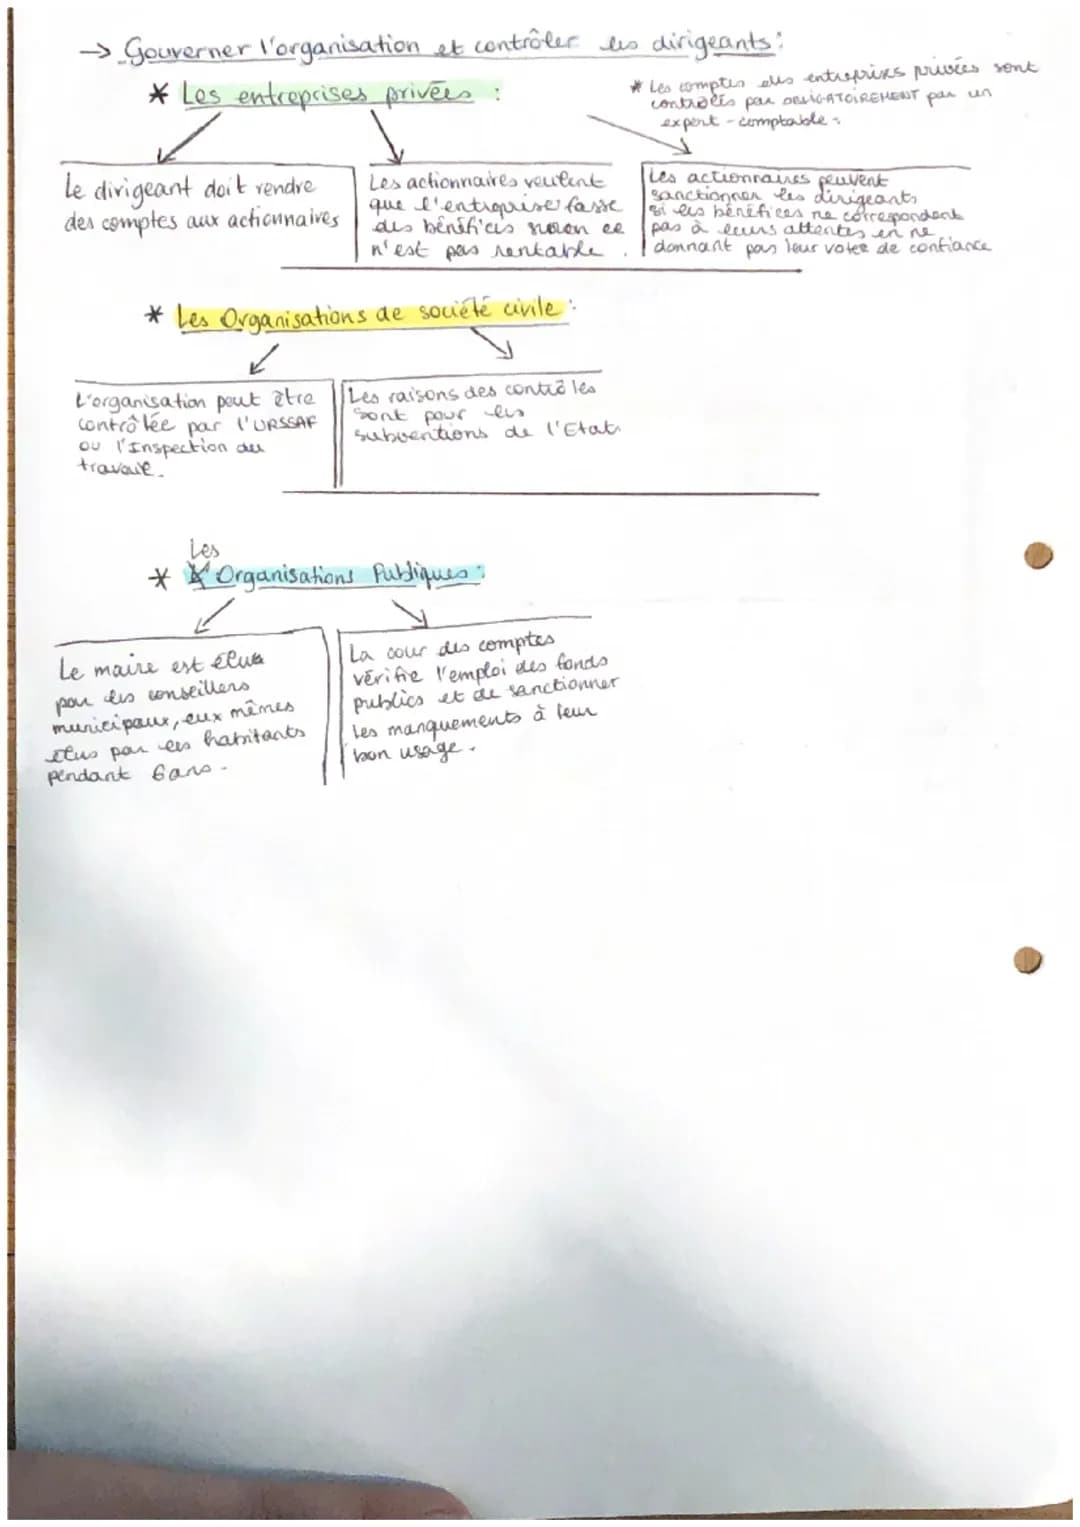 → Gouverner l'organisation et contrôler les dirigeants :
* Les entreprises privées :
* Les comptes des entreprises privées sont
controlés par OBLIGATOIREMENT par un
expert-comptable.
Le dirigeant doit rendre
des comptes aux actionnaires
Les actionnaires veulent
que l'entreprise fasse
des bénéfices sinon ce
n'est pas rentable.
Les actionnaires peuvent
sanctionner les dirigeants
si les bénéfices ne correspondent
pas à leurs attentes en ne
donnant pas leur votes de confiance
* Les Organisations de société civile :
L'organisation peut être
contrôlée par l'URSSAF
ou l'Inspection du
travail.
Les raisons des contrôles
sont pour les
subventions de l'Etat.
Les
* Organisations Publiques :
Le maire est élus
par les conseillers
municipaux, eux mêmes
élus par les habitants
pendant 6 ans.
La cour des comptes
vérifie l'emploi des fonds
publics et de sanctionner
les manquements à leur
bon usage.